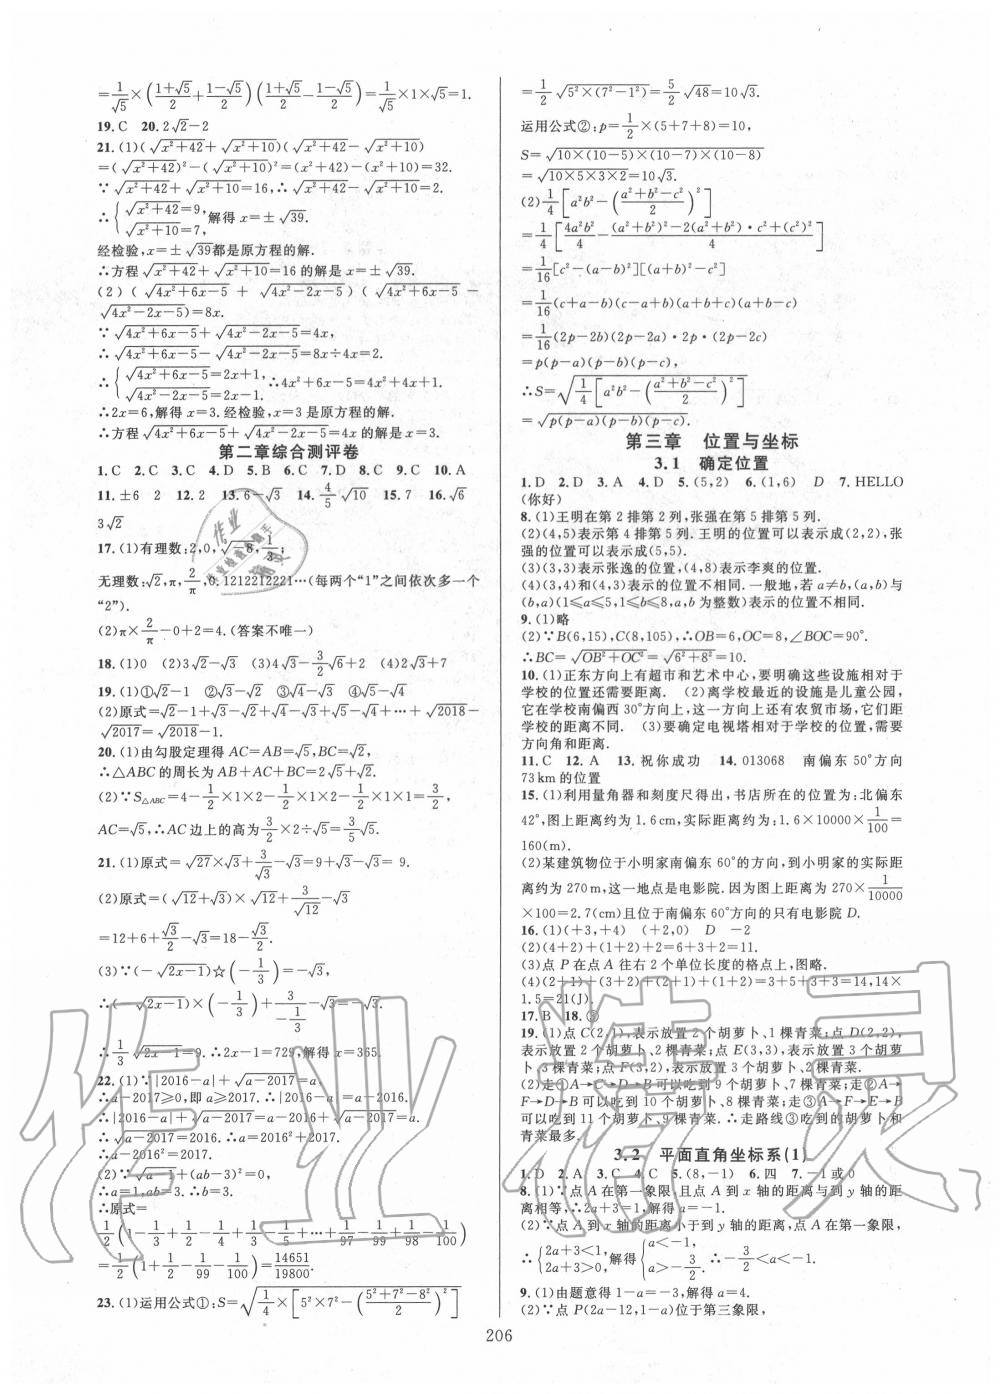 =1/√5×((1+√5)/2+(1-√5)/2)((1+√5)/2-(1-√5)/2)=1/√5×1×√5=1.
19. C  20. 2√2-2
21. (1)(√(x²+42)+√(x²+10))(√(x²+42)-√(x²+10))
=(√(x²+42))²-(√(x²+10))²=(x²+42)-(x²+10)=32.
∵√(x²+42)+√(x²+10)=16,∴√(x²+42)-√(x²+10)=2.
∴{√(x²+42)=9, √(x²+10)=7, 解得 x=±√39.
经检验,x=±√39都是原方程的解.
∴方程√(x²+42)+√(x²+10)=16 的解是 x=±√39.
(2)(√(4x²+6x-5)+√(4x²-2x-5))(√(4x²+6x-5)-
√(4x²-2x-5))=8x.
∵√(4x²+6x-5)+√(4x²-2x-5)=4x,
∴√(4x²+6x-5)-√(4x²-2x-5)=8x÷4x=2.
∴{√(4x²+6x-5)=2x+1, √(4x²-2x-5)=2x-1. ∴4x²+6x-5=4x²+4x+1.
∴2x=6,解得 x=3. 经检验,x=3 是原方程的解.
∴方程√(4x²+6x-5)+√(4x²-2x-5)=4x 的解是 x=3.
第二章综合测评卷
1. C  2. C  3. C  4. D  5. B  6. D  7. B  8. C  9. C  10. A
11. ±6  2  12. 2  13. 6-√3  14. 4/5√10  15. 7  16. √6
3√2
17. (1)有理数:2,0,√8,1/3;
无理数:√2,π,2/π,0.1212212221…(每两个“1”之间依次多一个
“2”).
(2)π×2/π-0+2=4.(答案不唯一)
18. (1)0  (2)3√2-√3  (3)4√3-3/2√2  (4)2√3+7
19. (1)①√2-1  ②√3-√2  ③√4-√3
(2)原式=√2-1+√3-√2+√4-√3+√5-√4+…+√2018-
√2017=√2018-1.
20. (1)由勾股定理得 AC=AB=√5,BC=√2,
∴△ABC 的周长为 AB+AC+BC=2√5+√2.
(2)∵S△ABC=4-1/2×1×2-1/2×1×2-1/2×1×1=3/2,
AC=√5,∴AC 边上的高为3/2×2÷√5=3/5√5.
21. (1)原式=√27×√3+3/√3-√3=9+√3-√3=9.
(2)原式=(√12+√3)×√12+3/√12-√3
=12+6+√3/2-√3=18-√3/2.
(3)∵(-√(2x-1))☆(-1/3)=-√3,
∴(-√(2x-1))×(-1/3)+3/(-1/3)=0.
∴1/3√(2x-1)=9. ∴2x-1=729,解得 x=365.
22. (1)∵|2016-a|+√(a-2017)=a,
∴a-2017≥0,即 a≥2017. ∴|2016-a|=a-2016.
∴|2016-a|+√(a-2017)=a-2016+√(a-2017)=a.
∴√(a-2017)=2016. ∴a-2016²=2017.
(2)∵√(a-1)+(ab-3)²=0,
∴a=1,ab=3. ∴a=1,b=3.
∴原式=
1/2(1-1/3+1/2-1/4+1/3-1/5+…+1/97-1/99+1/98-1/100)
=1/2(1+1/2-1/99-1/100)=14651/19800.
23. (1)运用公式①:S=√(1/4×[5²×7²-((5²+7²-8²)/2)²])
=1/2√(5²×(7²-1²))=5/2√48=10√3.
运用公式②:p=1/2×(5+7+8)=10,
S=√(10×(10-5)×(10-7)×(10-8))
=√(10×5×3×2)=10√3.
(2)1/4[a²b²-((a²+b²-c²)/2)²]
=1/4[4a²b²/4-((a²+b²)²-2(a²+b²)·c²+(c²)²)/4]
=1/16[c²-(a-b)²][(a+b)²-c²]
=1/16(c+a-b)(c-a+b)(a+b+c)(a+b-c)
=1/16(2p-2b)(2p-2a)·2p·(2p-2c)
=p(p-a)(p-b)(p-c)
∴S=√(1/4[a²b²-((a²+b²-c²)/2)²])
=√(p(p-a)(p-b)(p-c)).
第三章  位置与坐标
3.1  确定位置
1. D  2. D  3. A  4. D  5. (5,2)  6. (1,6)  D  7. HELLO
(你好)
8. (1)王明在第 2 排第 2 列,张强在第 5 排第 5 列.
(2)(4,5)表示第 4 排第 5 列. 王明的位置可以表示成(2,2),张
强的位置可以表示成(5,5).
(3)(3,3)表示张逸的位置,(4,8)表示李爽的位置.
(4)(3,4)和(4,3)表示的位置不相同. 一般地,若 a≠b,(a,b)与
(b,a)(1≤a≤5,1≤b≤8,a,b 为整数)表示的位置不相同.
9. (1)略
(2)∵B(6,15),C(8,105),∴OB=6,OC=8,∠BOC=90°.
∴BC=√(OB²+OC²)=√(6²+8²)=10.
10. (1)正东方向上有超市和艺术中心,要明确这些设施相对于
学校的位置还需要距离. (2)离学校最近的设施是儿童公园,
它在学校南偏西 30°方向上,这一方向上还有农贸市场,它们距
学校的距离不同. (3)要确定电视塔相对于学校的位置,需要
方向角和距离.
11. C  12. A  13. 祝你成功  14. 013068  南偏东 50°方向
73 km 的位置
15. (1)利用量角器和刻度尺得出,书店所在的位置为:北偏东
42°,图上距离约为 1.6 cm,实际距离约为:1.6×10000×1/100=
160(m).
(2)某建筑物位于小明家南偏东 60°的方向,到小明家的实际距
离约为 270 m,这一地点是电影院. 因为图上距离为 270×1/10000
×100=2.7(cm)且位于南偏东 60°方向的只有电影院 D.
16. (1)(+3,+4)  (+2,0)  D  -2
(2)(2+4)+(1+2)+(1+2)=6+3+2=11.
(3)点 P 在点 A 往右 2 个单位长度的格点上,图略.
(4)(2+1)+(3+2)+(1+3)+(1+1)=3+5+4+2=14,14×
1.5=21(J).
17. B  18. ③
19. (1)点 C(2,1),表示放置 2 个胡萝卜、1 棵青菜;点 D(2,2),
表示放置 2 个胡萝卜、2 棵青菜;点 E(3,3),表示放置 3 个胡萝
卜、3 棵青菜;点 F(3,2),表示放置 3 个胡萝卜、2 棵青菜.
(2)走①A→C→D→B 可以吃到 9 个胡萝卜、7 棵青菜;走②A→
F→D→B 可以吃到 10 个胡萝卜、8 棵青菜;走③A→F→E→B
可以吃到 11 个胡萝卜、9 棵青菜. ∴走路线③吃到的胡萝卜和
青菜最多.
3.2  平面直角坐标系(1)
1. D  2. A  3. C  4. C  5. (8,-1)  6. 四  7. -1 或 0
8. (1)∵点 A 在第一象限,且点 A 到 x 轴的距离与到 y 轴的距
离相等,∴2a+3=1,解得 a=-1.
(2)∵点 A 到 x 轴的距离小于到 y 轴的距离,点 A 在第一象限,
∴{2a+3<1, 2a+3>0, 解得{a<-1, a>-3/2. ∴-3/2<a<-1.
9. (1)由题意得 1-a=-3,解得 a=4.
(2)∵点 P(2a-12,1-a)位于第三象限,
206
作业精灵